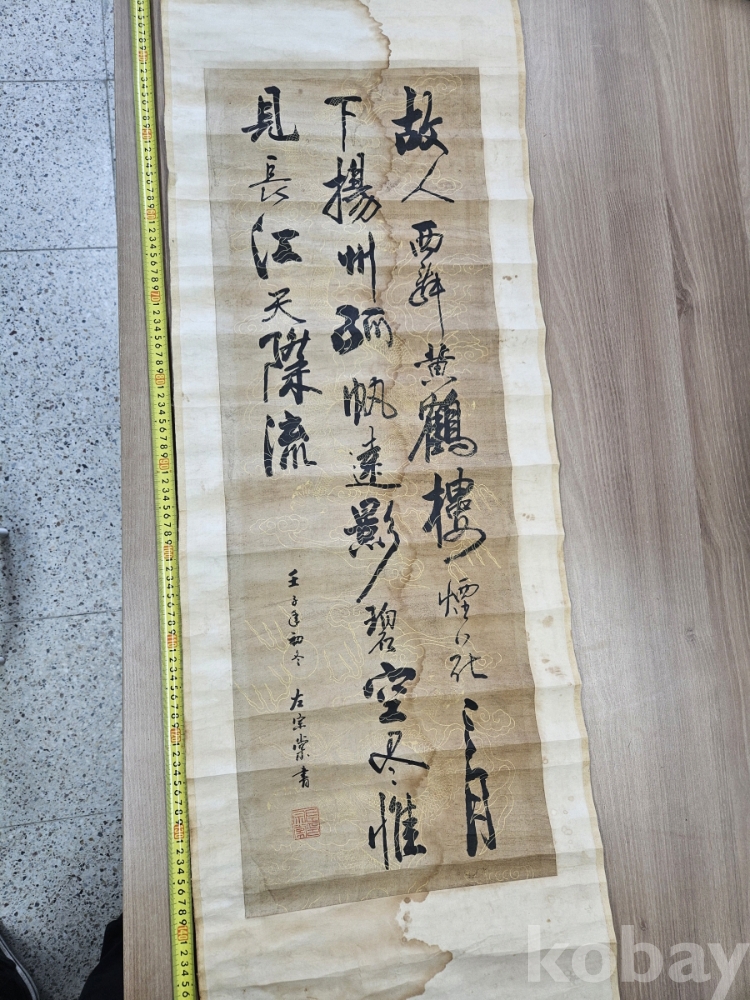 故人西辭黄鶴樓煙花三月
下揚州孤帆遠影碧空尽惟
見長江天際流
壬子年初冬 左宗棠書
kobay